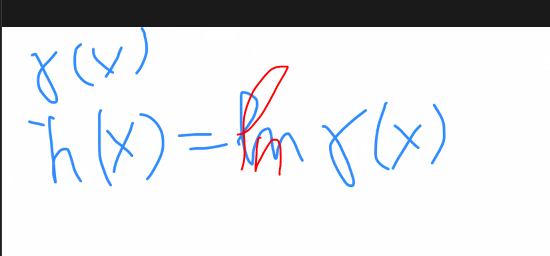 γ(x)
h(x) = ln γ(x)